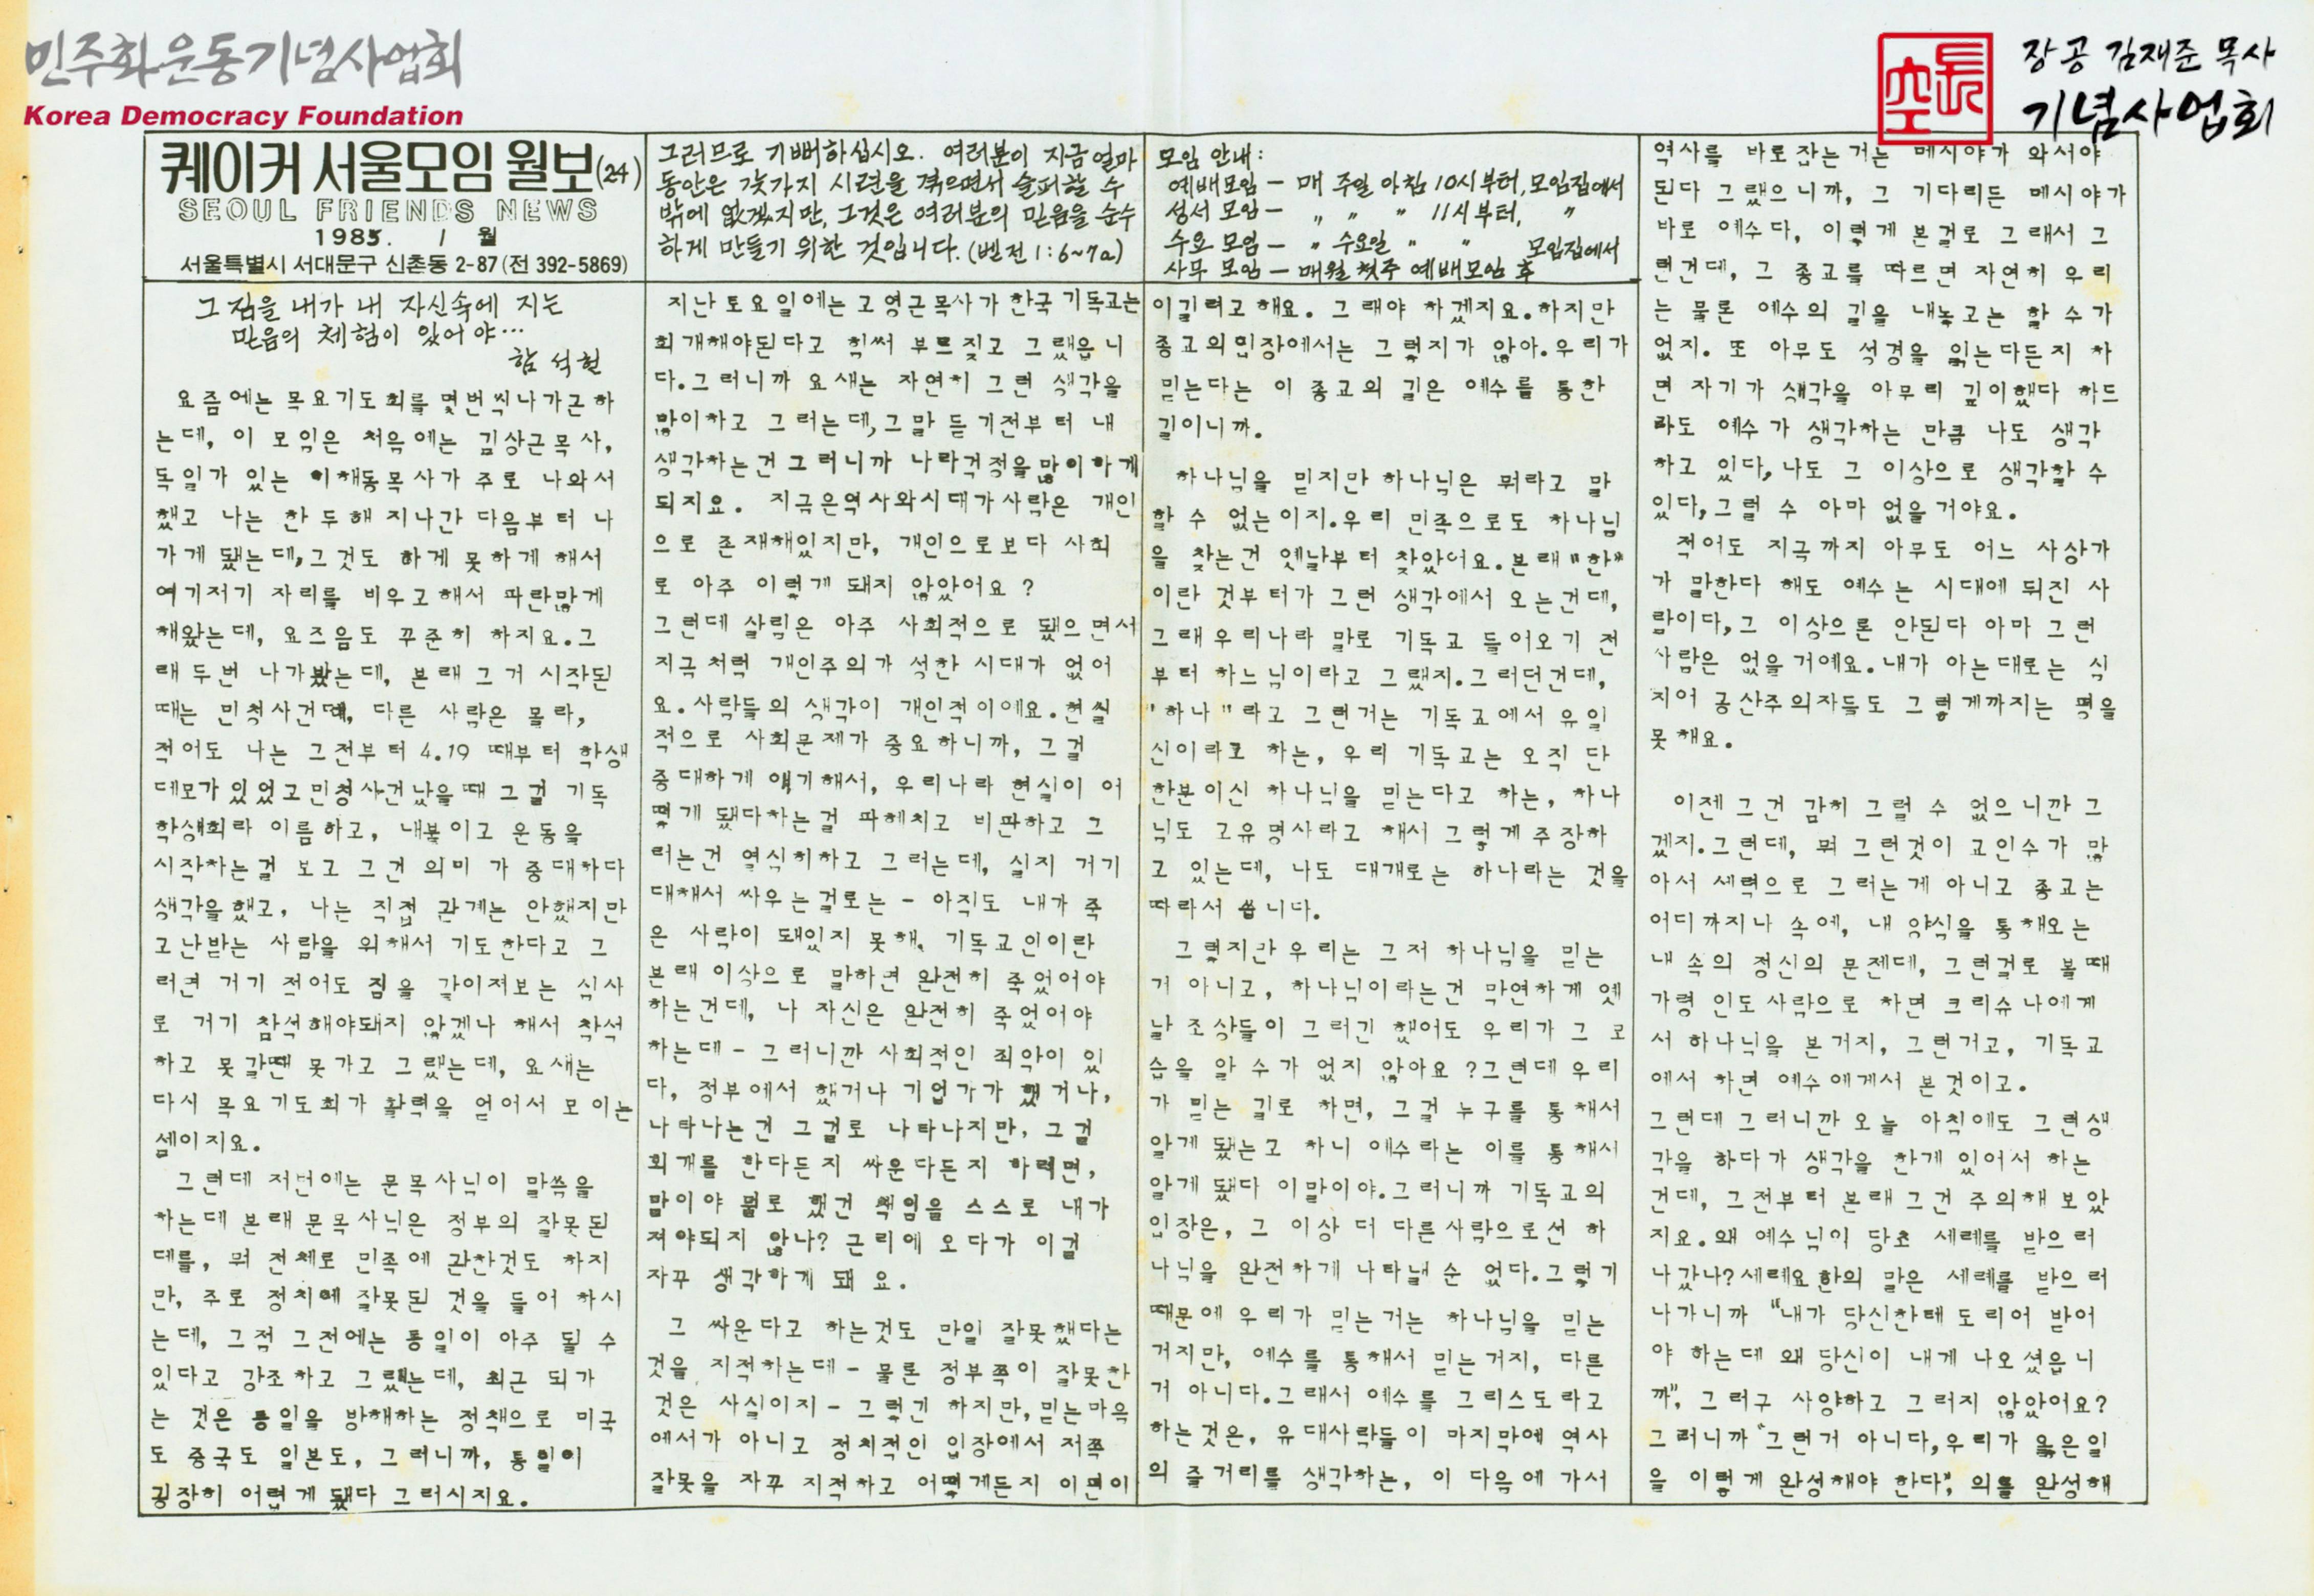 민주화운동기념사업회
Korea Democracy Foundation
長空
장공 김재준 목사
기념사업회
퀘이커 서울모임 월보(24)
SEOUL FRIENDS NEWS
1985. 1 월
서울특별시 서대문구 신촌동 2-87(전 392-5869)
그러므로 기뻐하십시오. 여러분이 지금얼마
동안은 갖가지 시련을 겪으면서 슬퍼할 수
밖에 없겠지만, 그것은 여러분의 믿음을 순수
하게 만들기 위한 것입니다.(벧전 1:6~7a)
모임 안내:
예배모임 - 매 주일 아침 10시부터, 모임집에서
성서 모임 - 〃 〃 〃 11시부터, 〃
수요 모임 - 〃 수요일 〃 〃 모임집에서
사무 모임 - 매월 첫주 예배모임 후
그 짐을 내가 내 자신속에 지는
믿음의 체험이 있어야…
함석헌
요즘에는 목요기도회를 몇번씩나가근하
는데, 이 모임은 처음에는 김상근목사,
독일가 있는 이해동목사가 주로 나와서
했고 나는 한 두해 지나간 다음부터 나
가게 됐는데,그것도 하게 못하게 해서
여기저기 자리를 비우고해서 파란많게
해왔는데, 요즈음도 꾸준히 하지요.그
래 두번 나가봤는데, 본래 그거 시작된
때는 민청사건때, 다른 사람은 몰라,
적어도 나는 그전부터 4.19 때부터 학생
데모가 있었고민청사건났을때 그걸 기독
학생회라 이름하고, 내붙이고 운동을
시작하는걸 보고 그건 의미가 중대하다
생각을했고, 나는 직접 관계는 안했지만
고난받는 사람을 위해서 기도한다고 그
러면 거기 적어도 짐을 같이져보는 심사
로 거기 참석해야돼지 않겠나 해서 참석
하고 못갈땐 못가고 그랬는데, 요새는
다시 목요기도회가 활력을 얻어서 모이는
셈이지요.
그런데 저번에는 문목사님이 말씀을
하는데 본래 문목사님은 정부의 잘못된
데를, 뭐 전체로 민족에 관한것도 하지
만, 주로 정치에 잘못된 것을 들어 하시
는데, 그적 그전에는 통일이 아주 될 수
있다고 강조하고 그랬는데, 최근 되가
는 것은 통일을 방해하는 정책으로 미국
도 중국도 일본도, 그러니까, 통일이
굉장히 어렵게 됐다 그러시지요.
지난토요일에는 고영근목사가 한국 기독교는
회개해야된다고 힘써 부르짖고 그랬읍니
다.그러니까 요새는 자연히 그런 생각을
많이하고 그러는데,그말 듣기전부터 내
생각하는건 그러니까 나라걱정을많이하게
되지요. 지금은역사와시대가사람은 개인
으로 존재해있지만, 개인으로보다 사회
로 아주 이렇게 돼지 않았어요?
그런데 살림은 아주 사회적으로 됐으면서
지금처럼 개인주의가 성한 시대가 없어
요.사람들의 생각이 개인적이에요.현실
적으로 사회문제가 중요하니까, 그걸
중대하게 얘기해서, 우리나라 현실이 어
떻게 됐다하는걸 파헤치고 비판하고 그
러는건 열심히하고 그러는데, 실지 거기
대해서 싸우는걸로는 - 아직도 내가 죽
은 사람이 돼있지 못해. 기독교인이란
본래 이상으로 말하면 완전히 죽었어야
하는건데, 나 자신은 완전히 죽었어야
하는데 - 그러니깐 사회적인 죄악이 있
다, 정부에서 했거나 기업가가 했거나,
나타나는건 그걸로 나타나지만, 그걸
회개를 한다든지 싸운다든지 하려면,
말이야 뭘로 했건 책임을 스스로 내가
져야되지 않나? 근리에 오다가 이걸
자꾸 생각하게 돼요.
그 싸운다고 하는것도 만일 잘못했다는
것을 지적하는데 - 물론 정부쪽이 잘못한
것은 사실이지 - 그렇긴 하지만,믿는마음
에서가 아니고 정치적인 입장에서 저쪽
잘못을 자꾸 지적하고 어떻게든지 이편이
이길려고해요. 그래야 하겠지요.하지만
종교의입장에서는 그렇지가 않아.우리가
믿는다는 이 종교의 길은 예수를 통한
길이니까.
하나님을 믿지만 하나님은 뭐라고 말
할 수 없는이지.우리 민족으로도 하나님
을 찾는건 옛날부터 찾았어요.본래"한"
이란 것부터가 그런 생각에서 오는건데,
그래우리나라 말로 기독교 들어오기 전
부터 하느님이라고 그랬지.그러던건데,
"하나"라고 그런거는 기독교에서 유일
신이라고 하는, 우리 기독교는 오직 단
한분이신 하나님을 믿는다고 하는, 하나
님도 고유명사라고 해서 그렇게주장하
고 있는데, 나도 대개로는 하나라는 것을
따라서 씁니다.
그렇지만 우리는 그저 하나님을 믿는
거 아니고, 하나님이라는건 막연하게 옛
날 조상들이 그러긴 했어도 우리가 그 모
습을 알 수가 없지 않아요?그런데 우리
가 믿는 길로 하면, 그걸 누구를 통해서
알게 됐는고 하니 예수라는 이를 통해서
알게 됐다 이말이야.그러니까 기독교의
입장은, 그 이상 더 다른사람으로선 하
나님을 완전하게 나타낼순 없다.그렇기
때문에 우리가 믿는거는 하나님을 믿는
거지만, 예수를 통해서 믿는거지, 다른
거 아니다.그래서 예수를 그리스도라고
하는것은, 유대사람들이 마지막에 역사
의 줄거리를 생각하는, 이 다음에 가서
역사를 바로잡는거는 메시야가 와서야
된다 그랬으니까, 그 기다리든 메시야가
바로 예수다, 이렇게 본걸로 그래서 그
런건데, 그 종교를 따르면 자연히 우리
는 물론 예수의 길을 내놓고는 할 수가
없지. 또 아무도 성경을 읽는다든지 하
면 자기가 생각을 아무리 깊이했다 하드
라도 예수가 생각하는 만큼 나도 생각
하고 있다,나도 그 이상으로 생각할 수
있다,그럴 수 아마 없을거야요.
적어도 지금까지 아무도 어느 사상가
가 말한다 해도 예수는 시대에 뒤진 사
람이다,그 이상으론 안된다 아마 그런
사람은 없을거예요.내가 아는대로는 심
지어 공산주의자들도 그렇게까지는 평을
못해요.
이젠 그건 감히 그럴 수 없으니깐 그
겠지.그런데, 뭐 그런것이 교인수가 많
아서 세력으로 그러는게 아니고 종교는
어디까지나 속에, 내 양식을 통해오는
내 속의 정신의 문젠데, 그런걸로 볼때
가령 인도사람으로 하면 크리슈나에게
서 하나님을 본거지, 그런거고, 기독교
에서 하면 예수에게서 본것이고.
그런데 그러니깐 오늘 아침에도 그런생
각을 하다가 생각을 한게 있어서 하는
건데, 그전부터 본래 그건 주의해 보았
지요.왜 예수님이 당초 세례를 받으러
나갔나?세례요한의 말은 세례를 받으러
나가니까 "내가 당신한테 도리어 받어
야 하는데 왜 당신이 내게 나오셨읍니
까", 그러구 사양하고 그러지 않았어요?
그러니까 "그런거 아니다,우리가 옳은일
을 이렇게 완성해야 한다", 의를 완성해